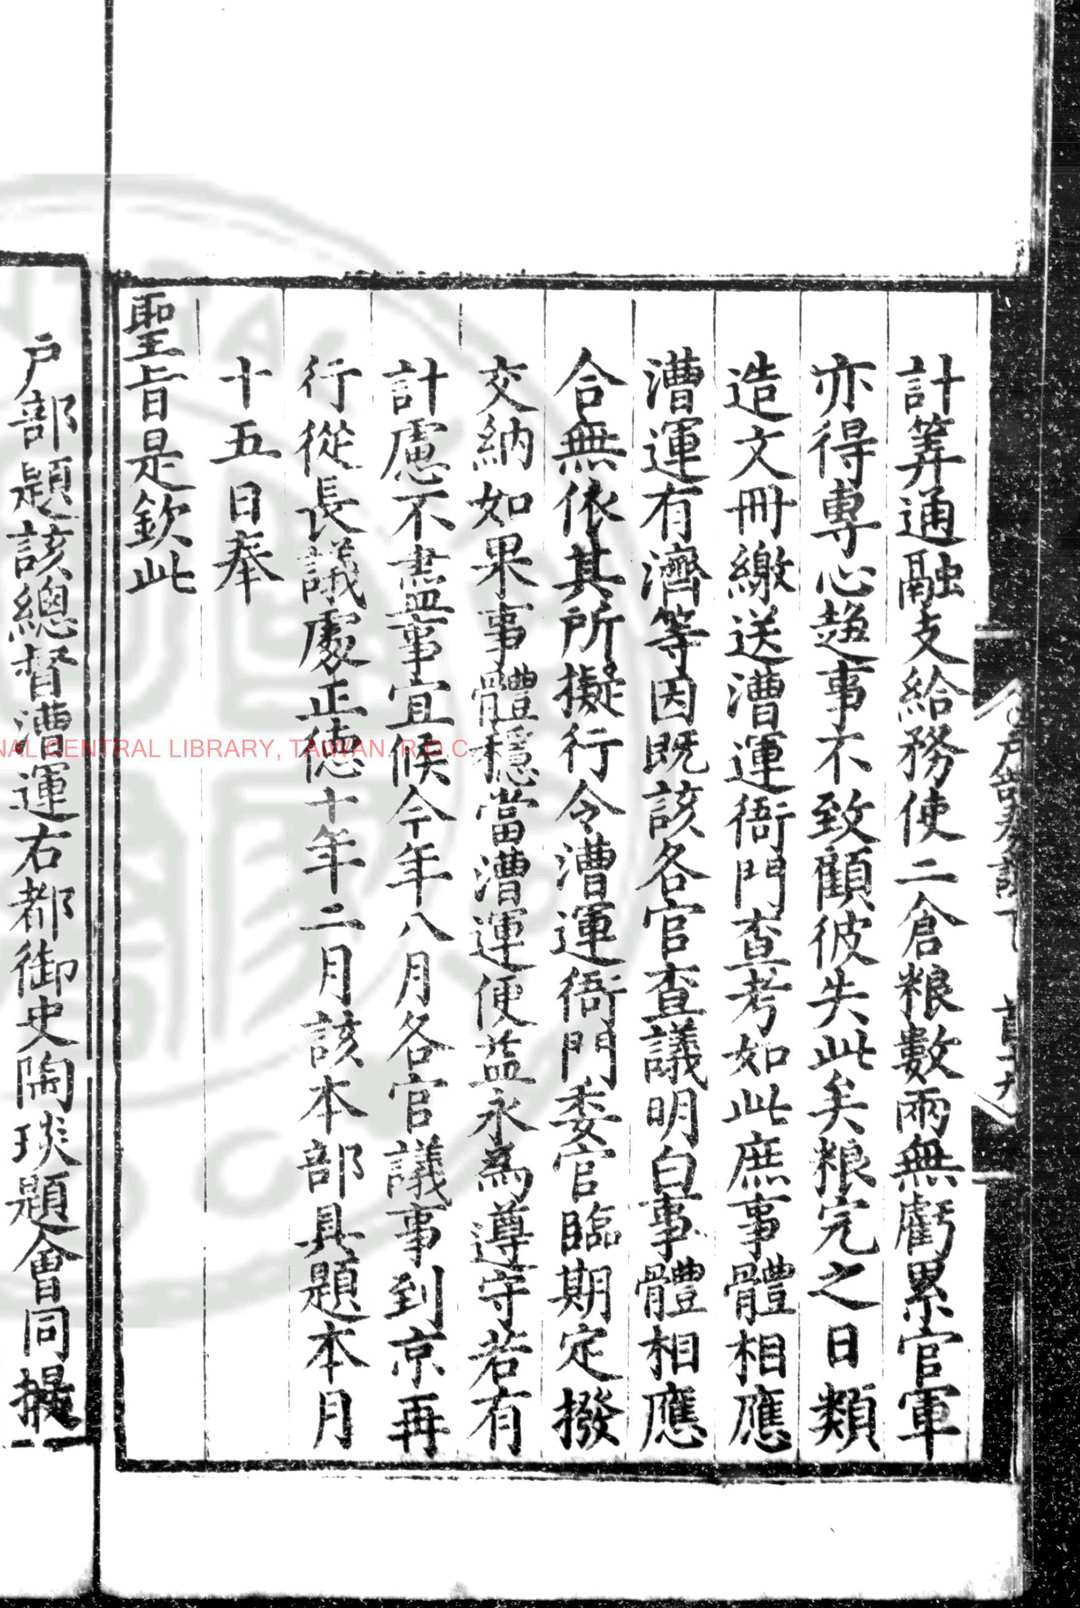 計筭通融支給務使二倉粮數兩無虧累官軍
亦得專心趨事不致顧彼失此矣粮完之日類
造文冊繳送漕運衙門查考如此庶事體相應
漕運有濟等因既該各官查議明白事體相應
合無依其所擬行令漕運衙門委官臨期定撥
交納如果事體穩當漕運便益永為遵守若有
計慮不盡事宜候今年八月各官議事到京再
行從長議處正德十年二月該本部具題本月
十五日奉
聖旨是欽此
戶部題該總督漕運右都御史陶琰題會同
NAL CENTRAL LIBRARY, TAIWAN, R.O.C